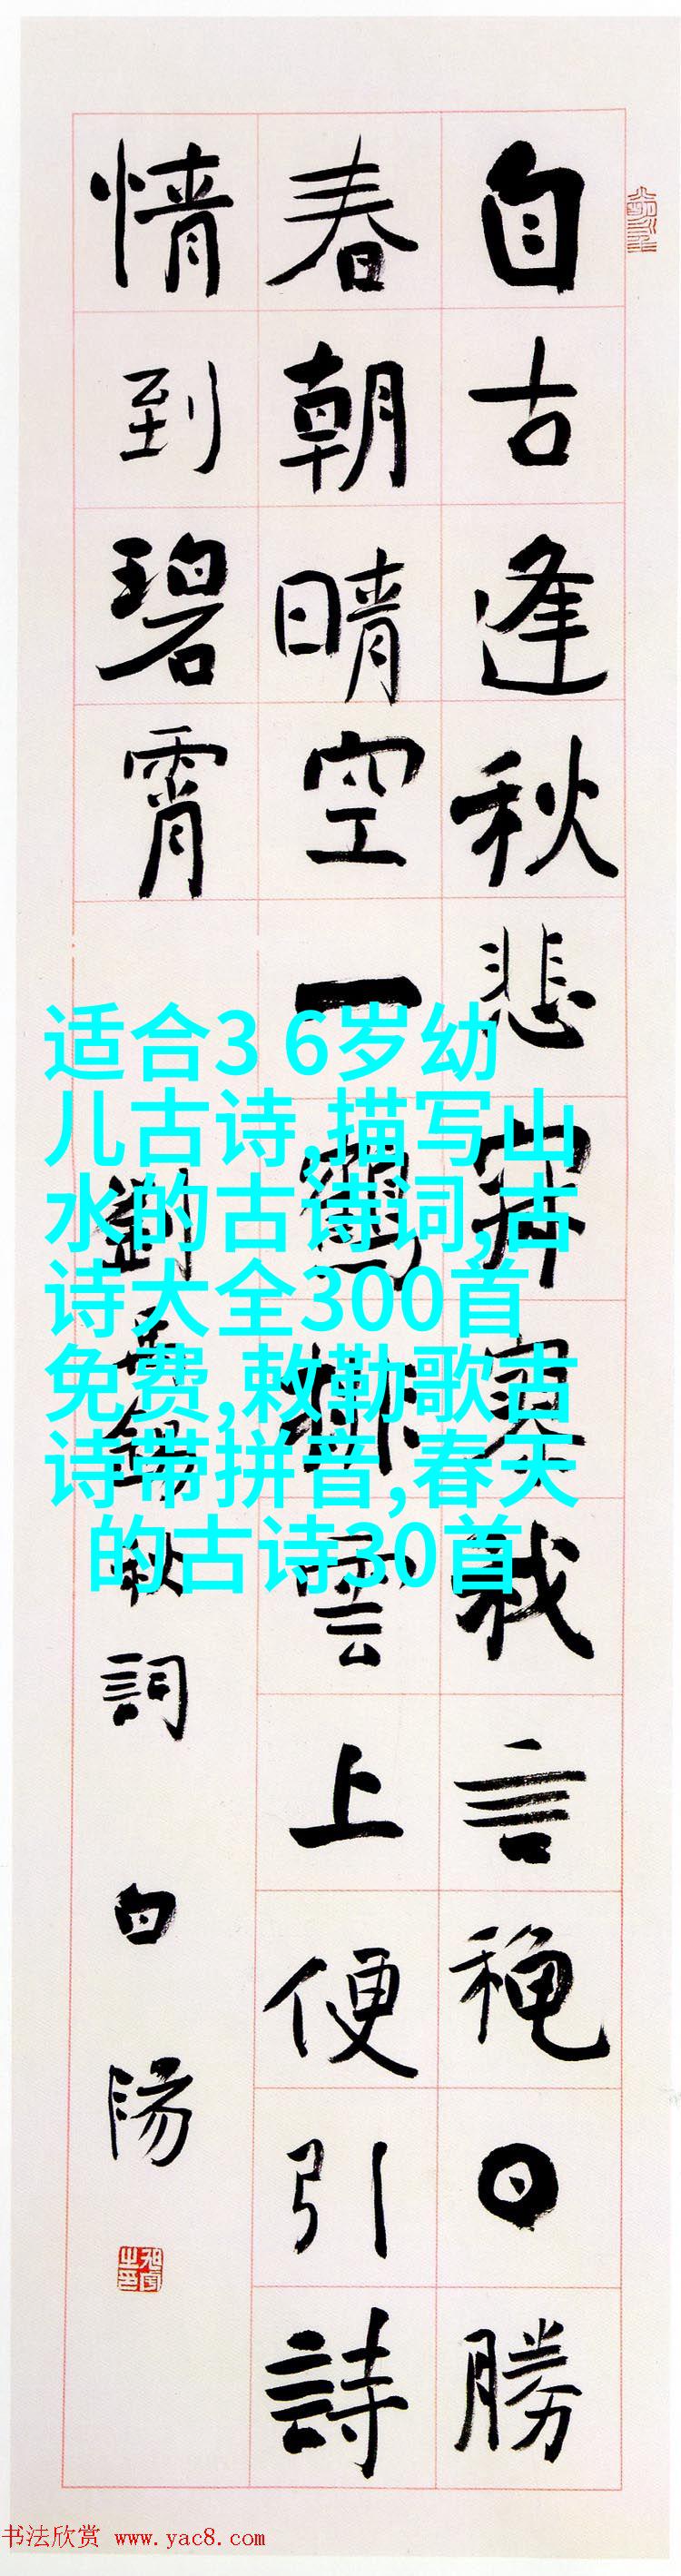 自古逢秋悲寂寥我言穐日勝
春朝晴空一鶴排雲上便引詩
情到碧霄
劉禹錫秋詞 白陽
适合3 6岁幼
儿古诗,描写山
水的古诗词,古
诗大全300首
免费,敕勒歌古
诗带拼音,春天
的古诗30首
书法欣赏 www.yac8.com